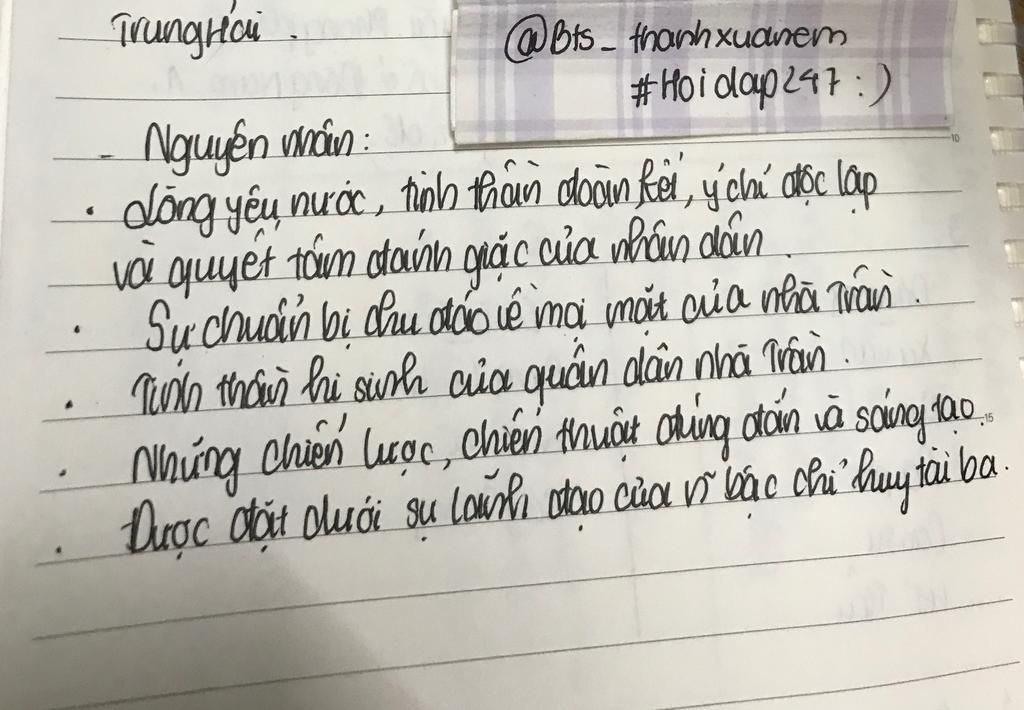 Trung Hải.
@Bts_thanhxuanem
#Hoidap247:)
- Nguyên nhân:
. dòng yêu nước, tinh thần đoàn kết, ý chí độc lập
và quyết tâm đánh giặc của nhân dân.
. Sự chuẩn bị chu đáo về mọi mặt của nhà Trần.
. Tinh thần hi sinh của quân dân nhà Trần.
. Những chiến lược, chiến thuật đúng đắn và sáng tạo.
. Được đặt dưới sự lãnh đạo của vĩ bậc chỉ huy tài ba.